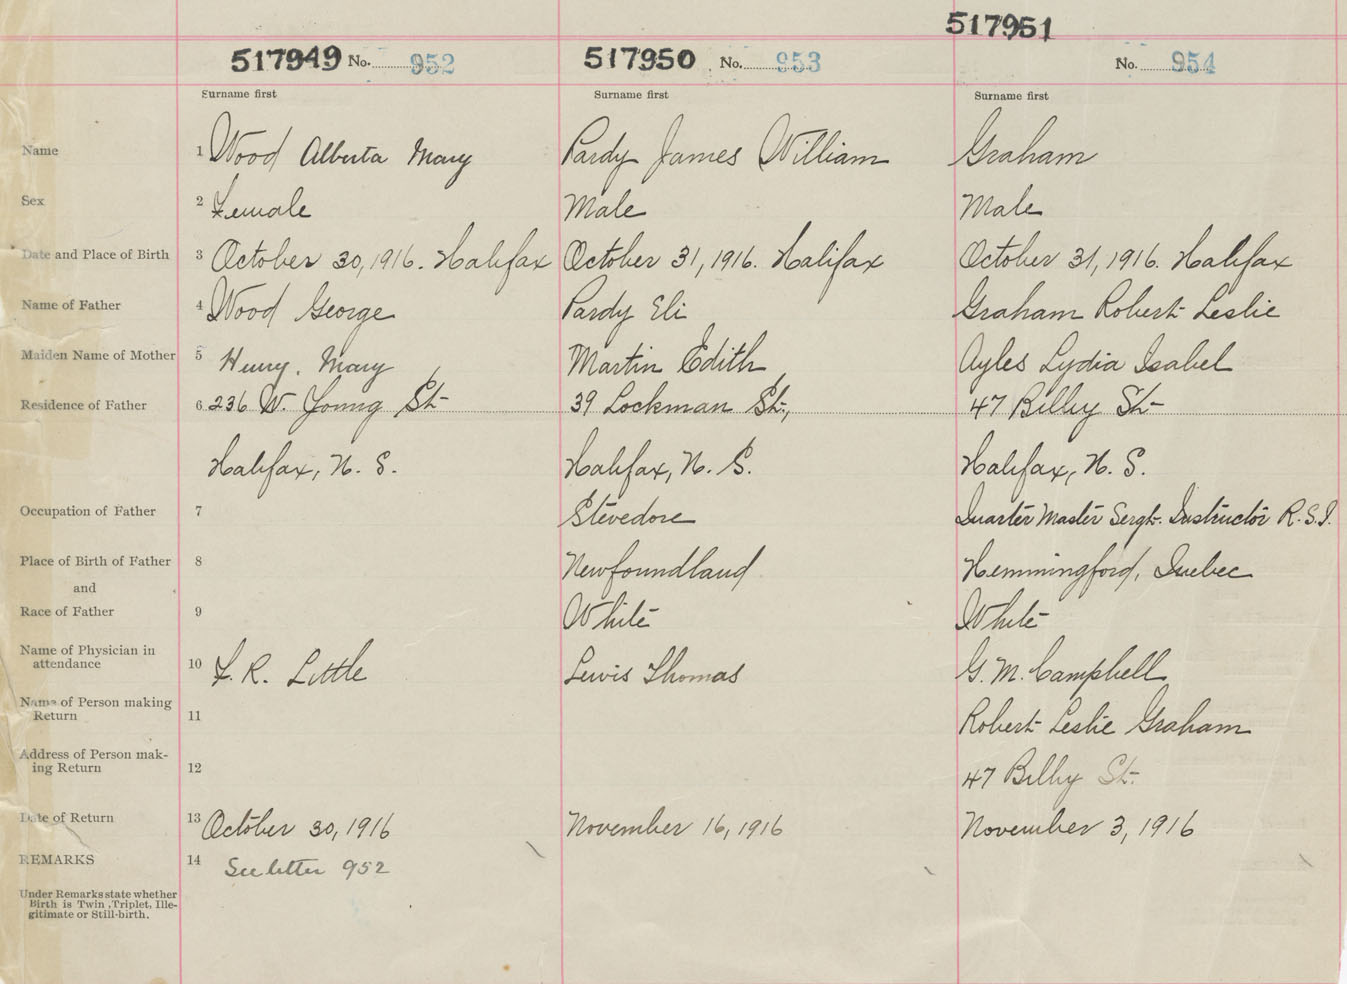 517951
517949 No. 952 517950 No. 953 No. 954
Surname first Surname first Surname first
Name 1 Wood Alberta Mary Pardy James William Graham
Sex 2 Female Male Male
Date and Place of Birth 3 October 30, 1916. Halifax October 31, 1916. Halifax October 31, 1916. Halifax
Name of Father 4 Wood George Pardy Eli Graham Robert Leslie
Maiden Name of Mother 5 Henry. Mary Martin Edith Ayles Lydia Isabel
Residence of Father 6 236 W. Young St 39 Lockman St., 47 Bilby St
Halifax, N. S. Halifax, N. S. Halifax, N. S.
Occupation of Father 7 Stevedore Quarter Master Sergt. Instructor R.S.I.
Place of Birth of Father 8 Newfoundland Hemmingford, Quebec
and
Race of Father 9 White White
Name of Physician in
attendance 10 F. R. Little Lewis Thomas G. M. Campbell
Name of Person making
Return 11 Robert Leslie Graham
Address of Person mak-
ing Return 12 47 Bilby St.
Date of Return 13 October 30, 1916 November 16, 1916 November 3, 1916
REMARKS 14 See letter 952
Under Remarks state whether
Birth is Twin, Triplet, Ille-
gitimate or Still-birth.